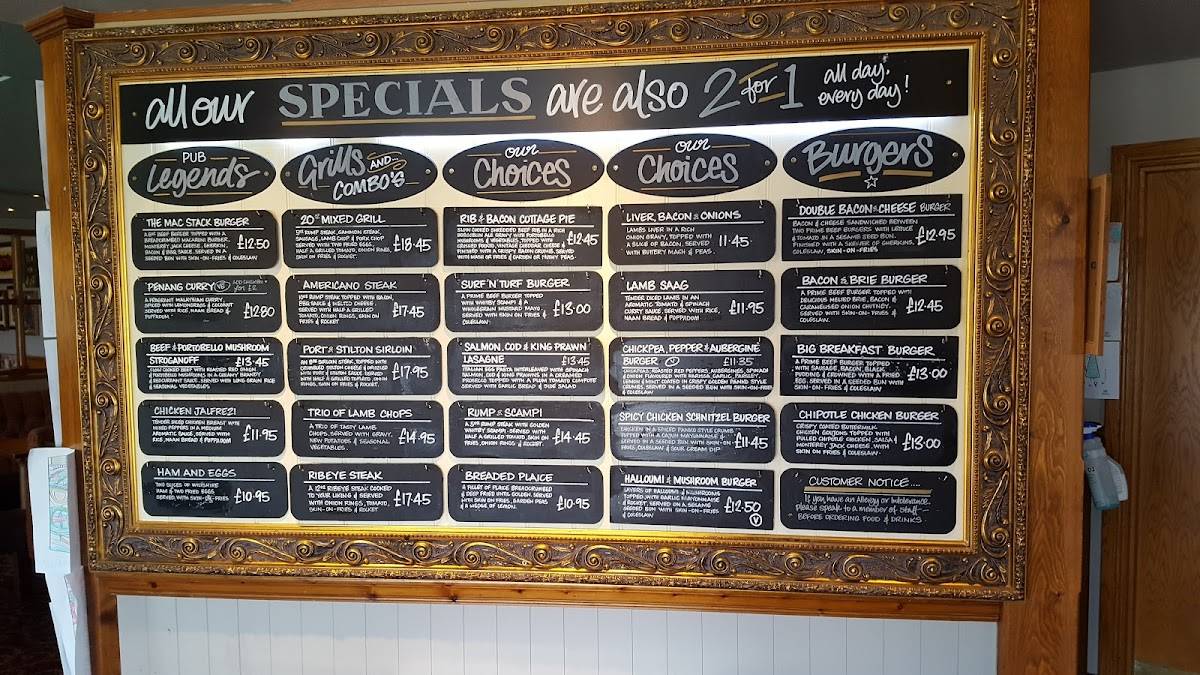 all our SPECIALS are also 2 for 1 all day, every day!
PUB
Legends
THE MAC STACK BURGER
£12.50
PENANG CURRY
ADD CHICKEN
for £2
A FRAGRANT MALAYSIAN CURRY
SERVED WITH RICE, NAAN BREAD &
POPPADOM
£12.80
BEEF & PORTOBELLO MUSHROOM
STROGANOFF £13.45
CHICKEN JALFREZI
TENDER DICED CHICKEN BREAST WITH
MIXED PEPPERS IN A MEDIUM
AROMATIC SAUCE, SERVED WITH
RICE, NAAN BREAD & POPPADOM
£11.95
HAM AND EGGS
TWO SLICES OF WILTSHIRE
HAM & TWO FRIED EGGS
SERVED WITH SKIN-ON-FRIES
£10.95
Grills AND
COMBO'S
20oz MIXED GRILL
5oz RUMP STEAK, GAMMON STEAK,
SAUSAGE, LAMB CHOP & PORK CHOP
SERVED WITH TWO FRIED EGGS,
HALF A GRILLED TOMATO, ONION RINGS,
SKIN ON FRIES & ROCKET.
£18.45
AMERICANO STEAK
10oz RUMP STEAK TOPPED WITH BACON,
BBQ SAUCE & MELTED CHEESE,
SERVED WITH HALF A GRILLED
TOMATO, ONION RINGS, SKIN ON
FRIES & ROCKET
£17.45
PORT & STILTON SIRLOIN
£17.95
TRIO OF LAMB CHOPS
A TRIO OF TASTY LAMB
CHOPS, SERVED WITH GRAVY,
NEW POTATOES & SEASONAL
VEGETABLES.
£14.95
RIBEYE STEAK
A 12oz RIBEYE STEAK COOKED
TO YOUR LIKING & SERVED
WITH ONION RINGS, TOMATO,
SKIN-ON-FRIES & ROCKET
£17.45
our
Choices
RIB & BACON COTTAGE PIE
£12.45
SURF 'N' TURF BURGER
A PRIME BEEF BURGER TOPPED
WITH WHITBY SCAMPI & A
WHOLEGRAIN MUSTARD MAYO.
SERVED WITH SKIN ON FRIES &
COLESLAW.
£13.00
SALMON, COD & KING PRAWN
LASAGNE £13.45
ITALIAN EGG PASTA INTERLEAVED WITH SPINACH
SALMON, COD & KING PRAWNS IN A CREAMED
PROSECCO TOPPED WITH A PLUM TOMATO COMPOTE
SERVED WITH GARLIC BREAD & SIDE SALAD
RUMP & SCAMPI
A 5oz RUMP STEAK WITH GOLDEN
WHITBY SCAMPI. SERVED WITH
HALF A GRILLED TOMATO, SKIN ON
FRIES, ONION RINGS & ROCKET.
£14.45
BREADED PLAICE
A FILLET OF PLAICE BREADCRUMBED
& DEEP FRIED UNTIL GOLDEN. SERVED
WITH SKIN ON FRIES, GARDEN PEAS
& WEDGE OF LEMON.
£10.95
our
Choices
LIVER, BACON & ONIONS
LAMBS LIVER IN A RICH
ONION GRAVY, TOPPED WITH
A SLICE OF BACON, SERVED
WITH BUTTERY MASH & PEAS.
11.45
LAMB SAAG
TENDER DICED LAMB IN AN
AROMATIC TOMATO & SPINACH
CURRY SAUCE, SERVED WITH RICE,
NAAN BREAD & POPPADOM
£11.95
CHICKPEA, PEPPER & AUBERGINE
BURGER £11.35
SPICY CHICKEN SCHNITZEL BURGER
£11.45
HALLOUMI & MUSHROOM BURGER
LAYERS OF HALLOUMI & MUSHROOMS
TOPPED WITH GARLIC MAYONNAISE
& ROCKET, SERVED ON A SESAME
SEEDED BUN WITH SKIN-ON-FRIES
& COLESLAW
£12.50
V
Burgers
DOUBLE BACON & CHEESE BURGER
BACON & CHEESE SANDWICHED BETWEEN
TWO PRIME BEEF BURGERS WITH LETTUCE
& TOMATO IN A SESAME SEED BUN.
FINISHED WITH A SKEWER OF GHERKINS,
COLESLAW, SKIN-ON-FRIES
£12.95
BACON & BRIE BURGER
A PRIME BEEF BURGER TOPPED WITH
DELICIOUS MELTED BRIE, BACON &
CARAMELISED ONION CHUTNEY.
SERVED WITH SKIN-ON-FRIES &
COLESLAW.
£12.45
BIG BREAKFAST BURGER
A PRIME BEEF BURGER TOPPED
WITH SAUSAGE, BACON, BLACK
PUDDING & CROWNED WITH A FRIED
EGG. SERVED IN A SEEDED BUN WITH
SKIN-ON-FRIES & COLESLAW
£13.00
CHIPOTLE CHICKEN BURGER
CRISPY COATED BUTTERMILK
CHICKEN GOUJONS TOPPED WITH
PULLED CHIPOTLE CHICKEN, SALSA &
MONTEREY JACK CHEESE, WITH
SKIN ON FRIES & COLESLAW
£13.00
CUSTOMER NOTICE....
If you have an Allergy or Intolerance
please speak to a member of staff -
BEFORE ORDERING FOOD & DRINKS